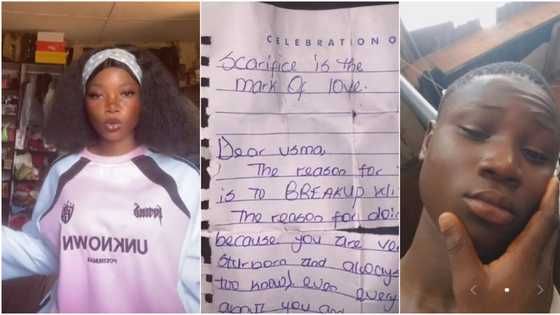 UNKNOWN
CELEBRATION O
Scarifice is the
mark Of love.
Dear usma,
The reason for
is TO BREAKUP
The reason for doi
because you are ve
Sturborn and always
too know) even every
about you and